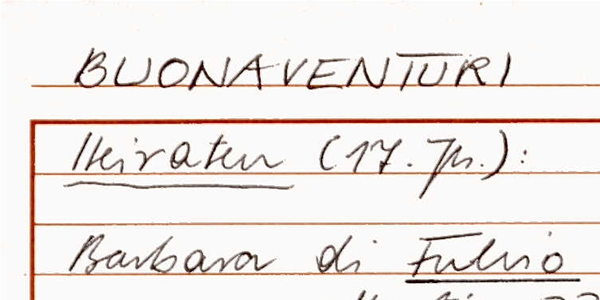 BUONAVENTURI
Heiraten (17. Jh.):
Barbara di Fulvio